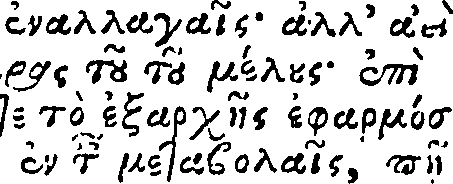 ἐναλλαγαῖς· ἀλλ' ἀεὶ
τοῦ τοῦ μέλους· ἐπὶ
τὸ ἐξαρχῆς ἐφαρμόσ
ἐν τ μεταβολαῖς,